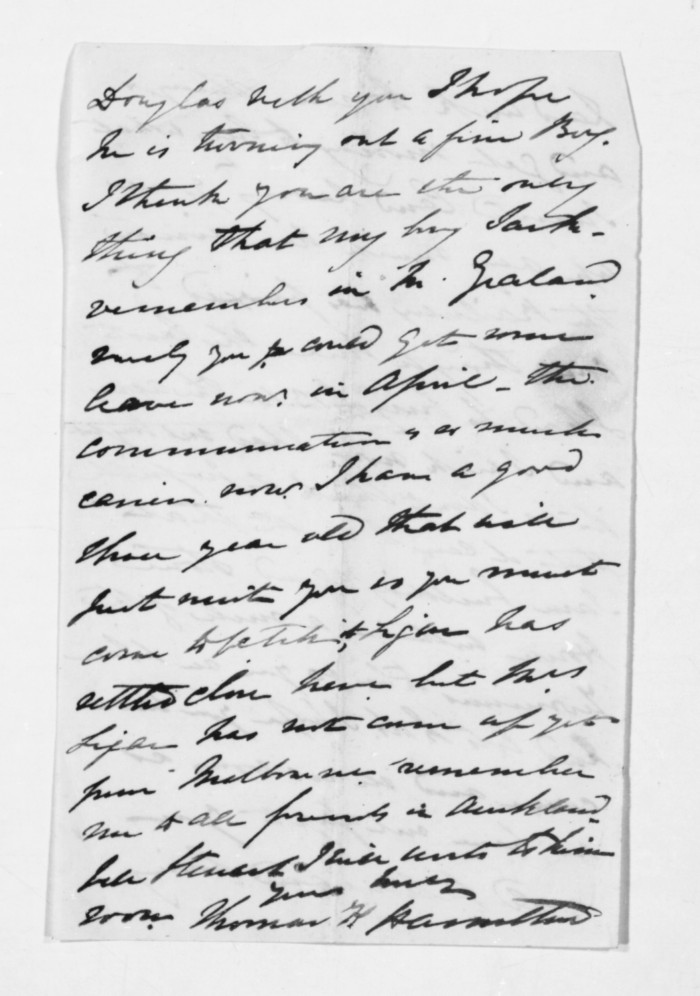 Douglas with you I hope
he is turning out a fine Boy.
I think you are the only
thing that my boy Jack -
remembers in N. Zealand
surely you could get some
leave now. in April - the
communication is so much
easier now. I have a good
three year old that will
just suit you so you must
come to fetch it, Ligar has
settled close here but Mrs
Ligar has not come up yet
from Melbourne remember
me to all friends in Auckland
tell Steuart I will write to him
yours truly
soon. Thomas H Hamilton